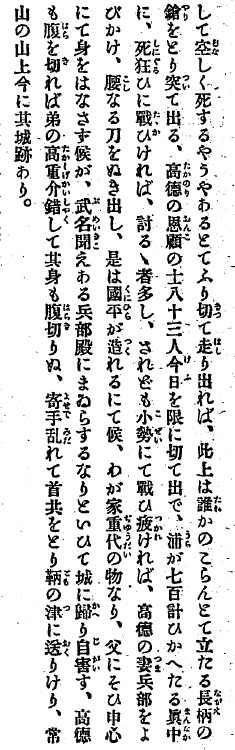 して空しく死するやうやあるとてふり切て走り出れば、此上は誰かのこらんとて立たる長柄の
鎗をとり突て出る、高德の恩顧の士八十三人今日を限に切て出で、浦が七百計ひかへたる眞中
に、死狂ひに戰ひければ、討るゝ者多し、されども小勢にて戰ひ疲ければ、高德の妻兵部をよ
びかけ、腰なる刀をぬき出し、是は國平が造れるにて候、わが家重代の物なり、父にそひ申心
にて身をはなさず候が、武名聞えある兵部殿にまゐらするなりといひて城に歸り自害す、高德
も腹を切れば弟の高重介錯して其身も腹切りぬ、寄手乱れて首共をとり鞆の津に送りけり、常
山の山上今に其城跡あり。